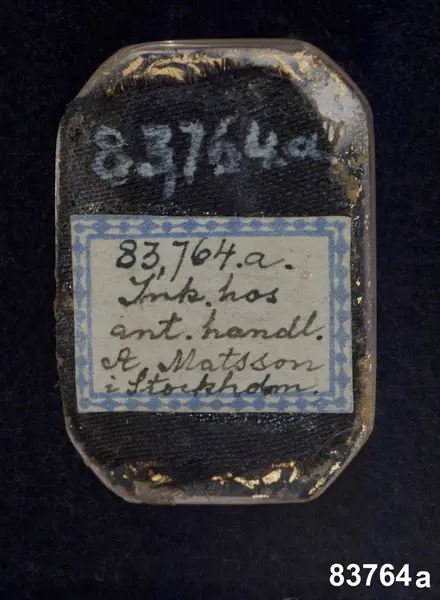 83,764.a
83,764.a.
Ink. hos
ant. handl.
A. Matsson
i Stockholm.
83764a